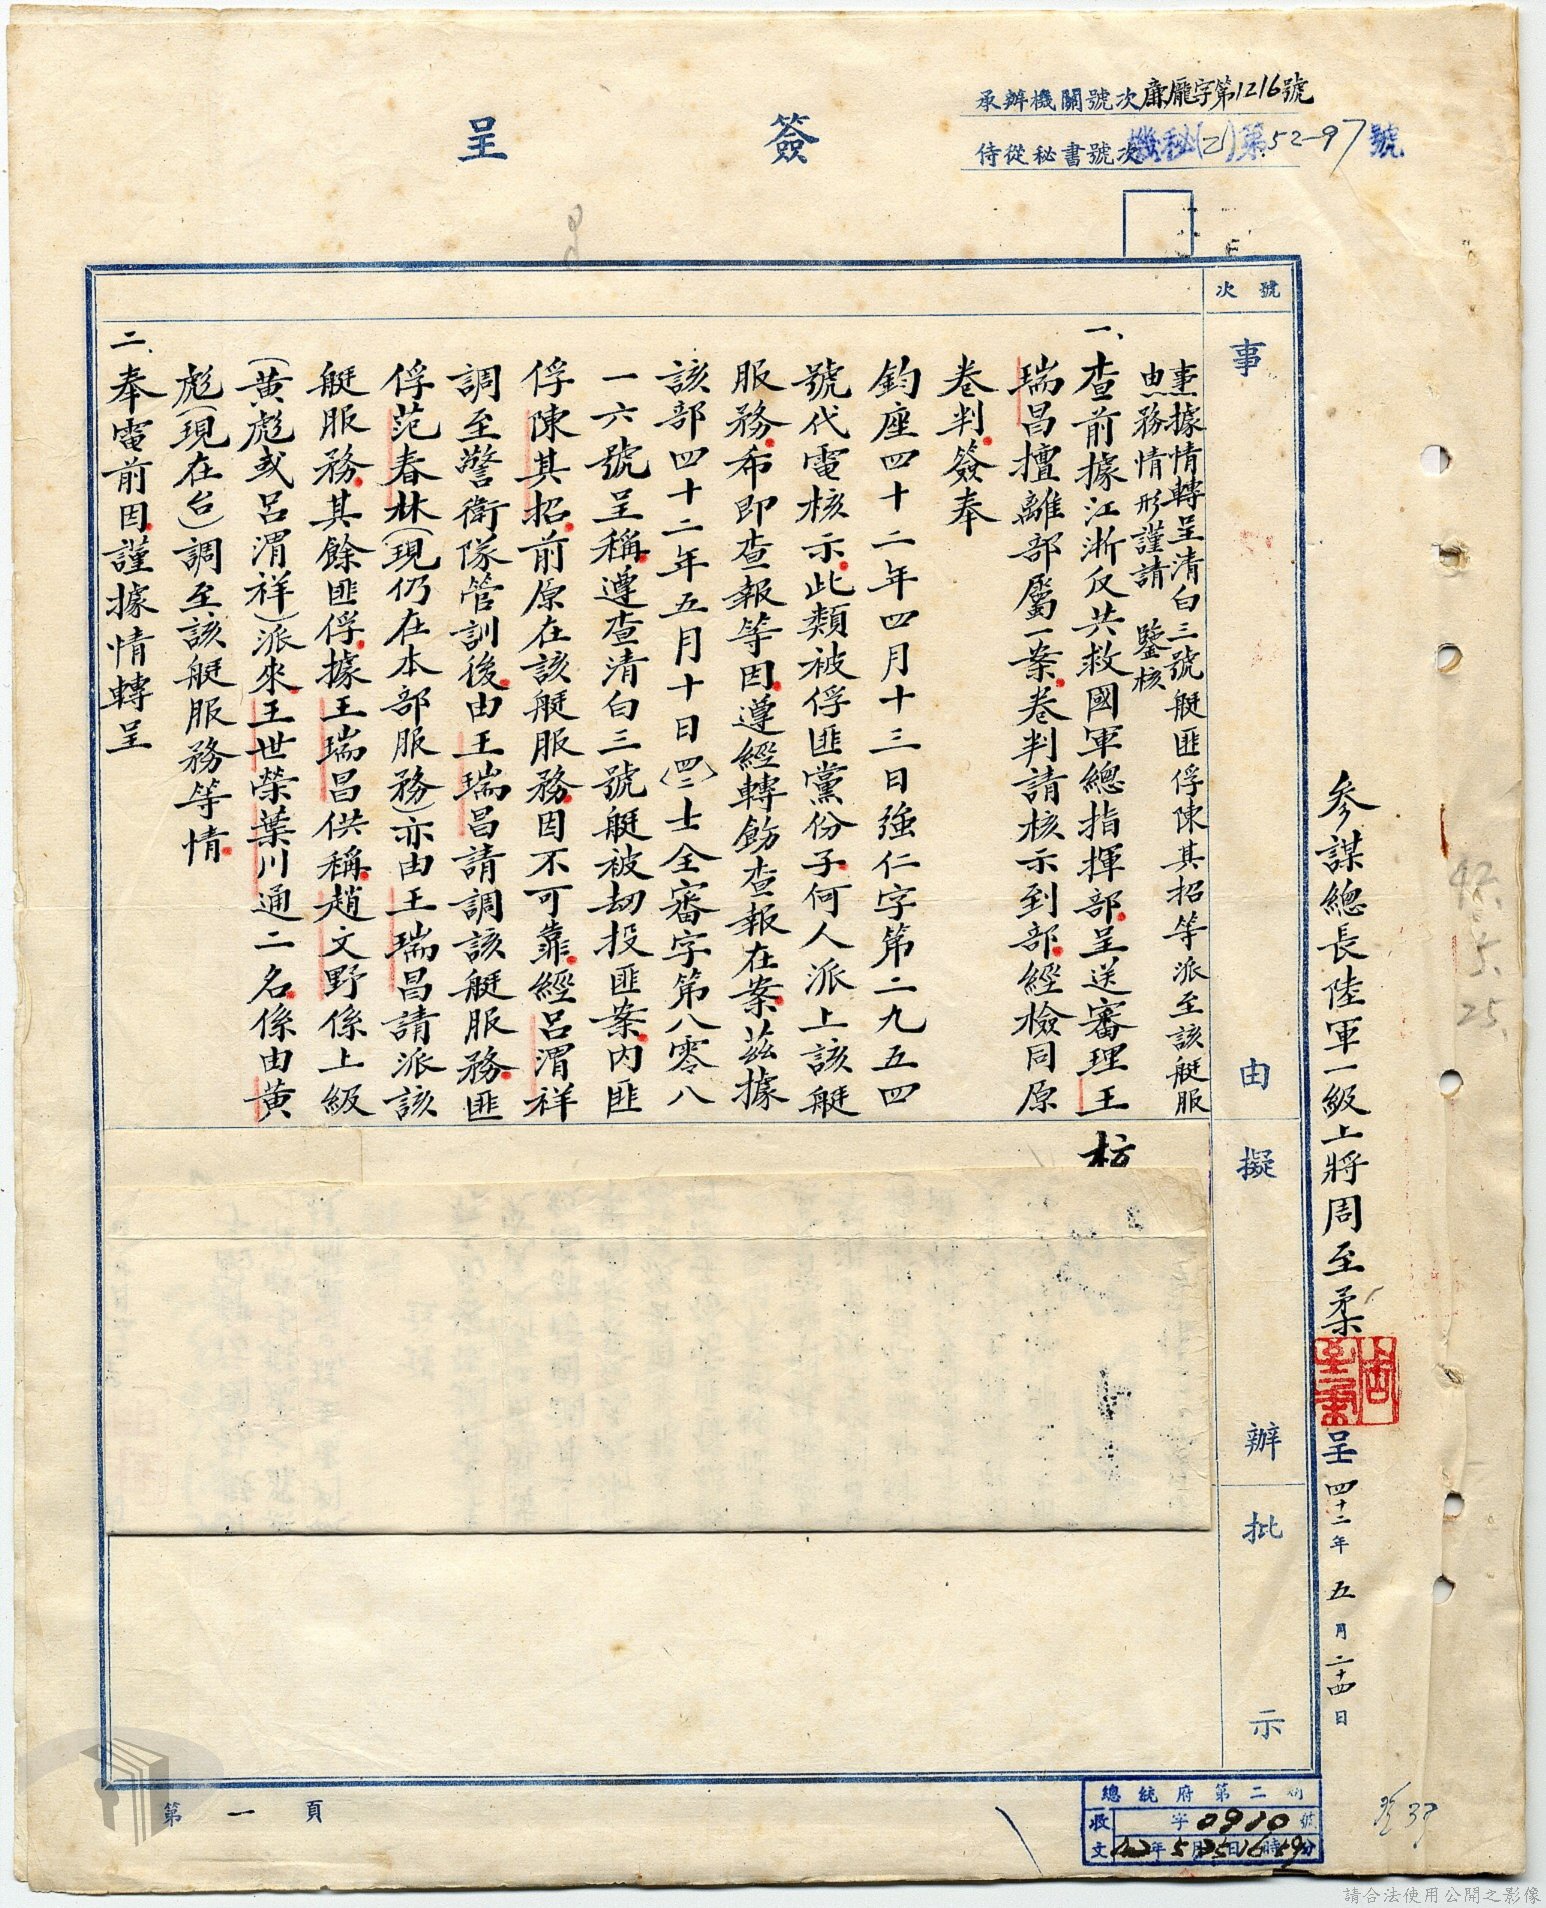 簽呈
承辦機關號次廉龐字第1216號
侍從秘書號次機秘(乙)第52-97號
參謀總長陸軍一級上將周至柔
周至柔
呈四十二年五月二十四日
號次
事由
擬辦
批示
事由
為據情轉呈清白三號艇匪俘陳其招等派至該艇服
務情形謹請 鑒核
一、查前據江浙反共救國軍總指揮部呈送審理王
瑞昌擅離部屬一案卷判請核示到部經檢同原
卷判簽奉
鈞座四十二年四月十三日強仁字第二九五四
號代電核示此類被俘匪黨份子何人派上該艇
服務希即查報等因遵經轉飭查報在案茲據
該部四十二年五月十日(四二)士全審字第八零八
一六號呈稱遵查清白三號艇被劫投匪案內匪
俘陳其招前原在該艇服務因不可靠經呂渭祥
調至警衛隊管訓後由王瑞昌請調該艇服務匪
俘范春林(現仍在本部服務)亦由王瑞昌請派該
艇服務其餘匪俘據王瑞昌供稱趙文野係上級
(黃彪或呂渭祥)派來王世榮葉川通二名係由黃
彪(現在台)調至該艇服務等情
二、奉電前因謹據情轉呈
枋
42.
5.
25.
總統府第二局
收文 字0910號
42年5月25日16時59分
第一頁
請合法使用公開之影像